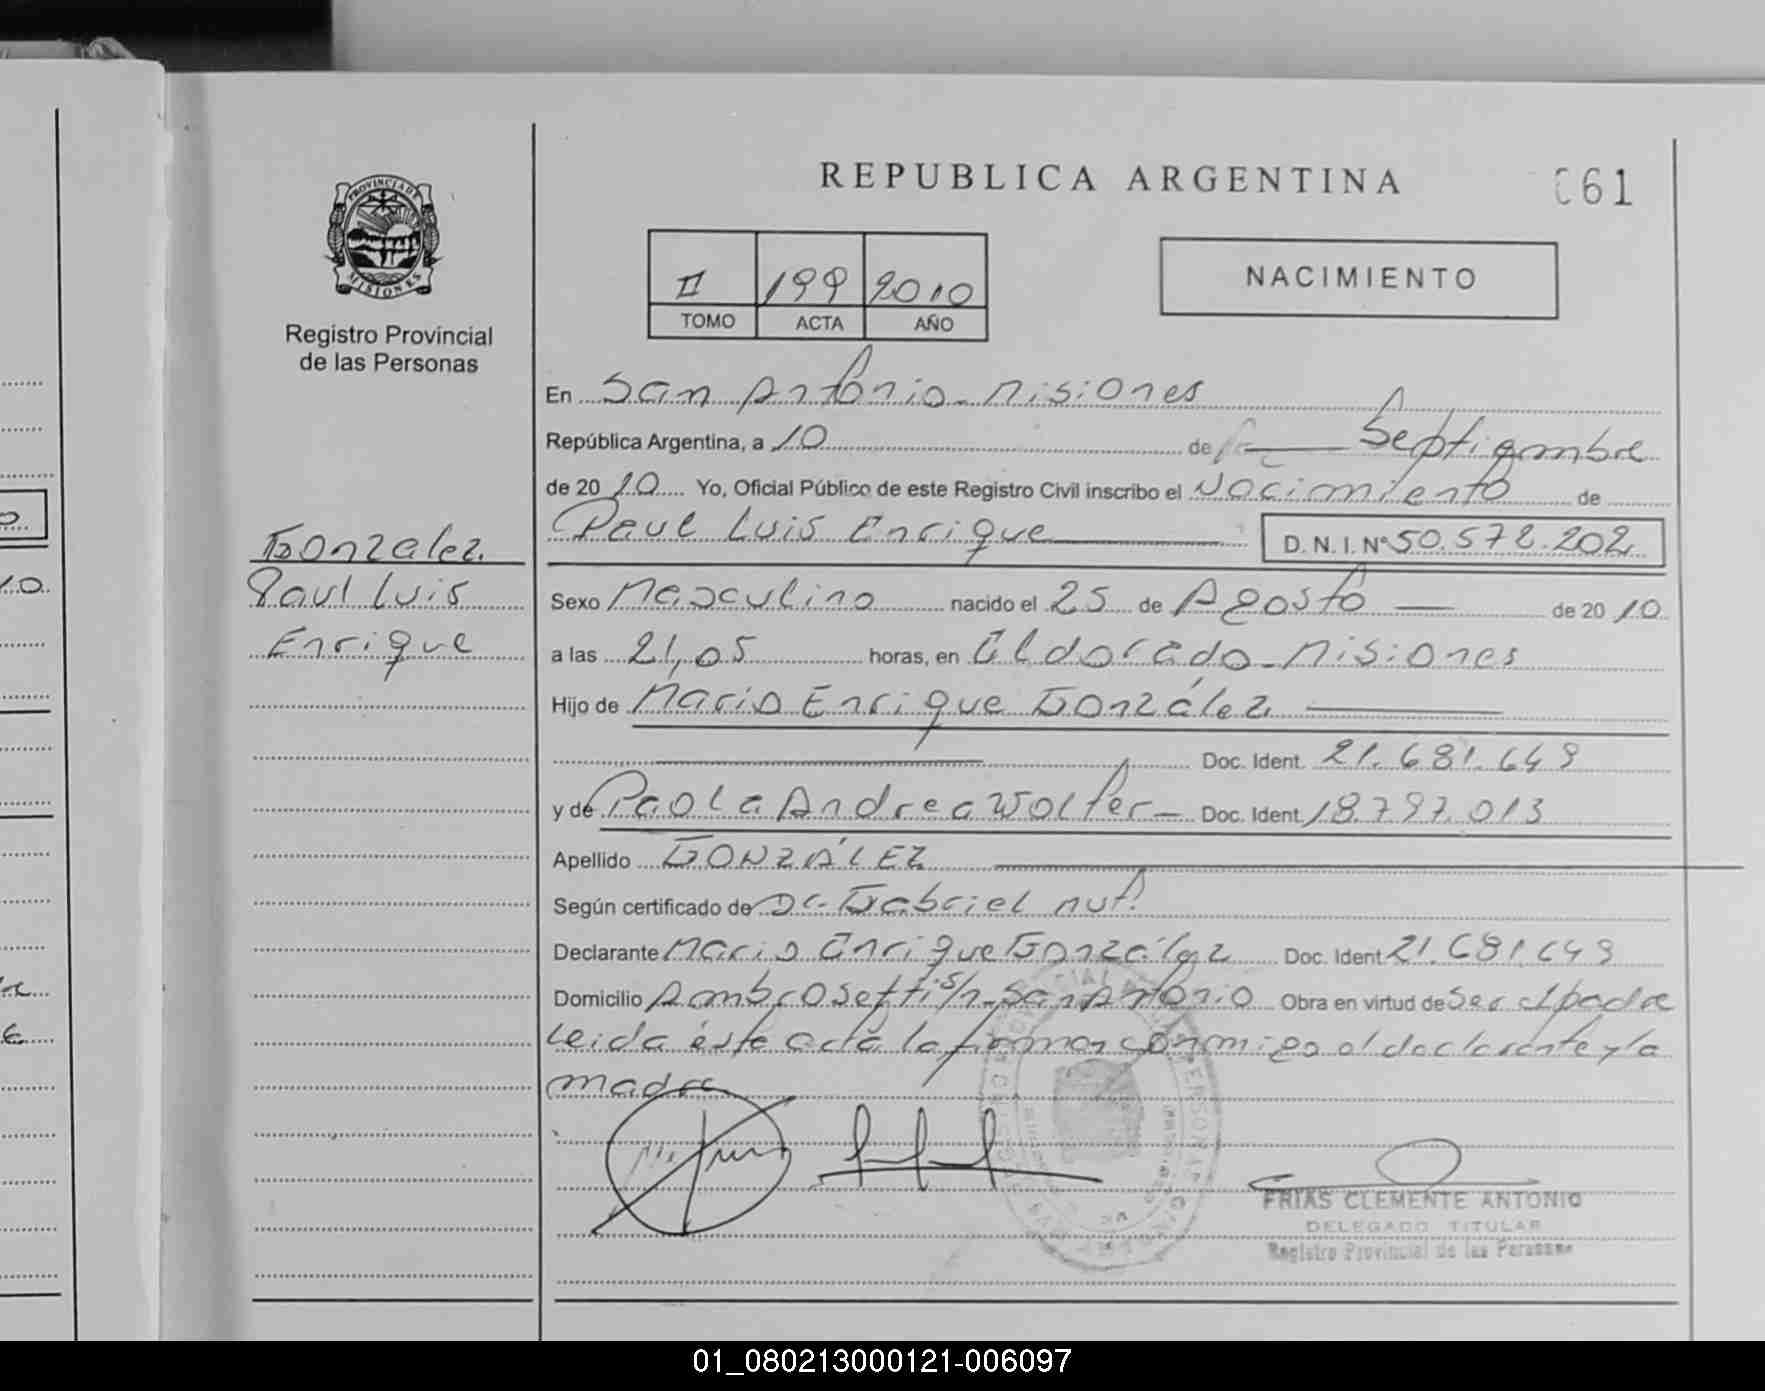 REPUBLICA ARGENTINA
061
PROVINCIA DE
MISIONES
Registro Provincial
de las Personas
II 199 2010
TOMO ACTA AÑO
NACIMIENTO
En San Antonio - Misiones
República Argentina, a 10 de Septiembre
de 20 10 Yo, Oficial Público de este Registro Civil inscribo el Nacimiento de
Paul Luis Enrique D.N.I. Nº 50.572.202
Gonzalez
Paul Luis
Enrique
Sexo Masculino nacido el 25 de Agosto de 20 10
a las 21,05 horas, en Eldorado - Misiones
Hijo de Mario Enrique González
Doc. Ident. 21.681.649
y de Paola Andrea Wolfer Doc. Ident. 18.797.013
Apellido GONZÁLEZ
Según certificado de Dr. Gabriel
Declarante Mario Enrique González Doc. Ident. 21.681.649
Domicilio Ambrosetti s/n - San Antonio Obra en virtud de Ser el padre
Leida éste acta la firman conmigo el declarante y la
madre
FRIAS CLEMENTE ANTONIO
DELEGADO TITULAR
Registro Provincial de las Personas
01_080213000121-006097